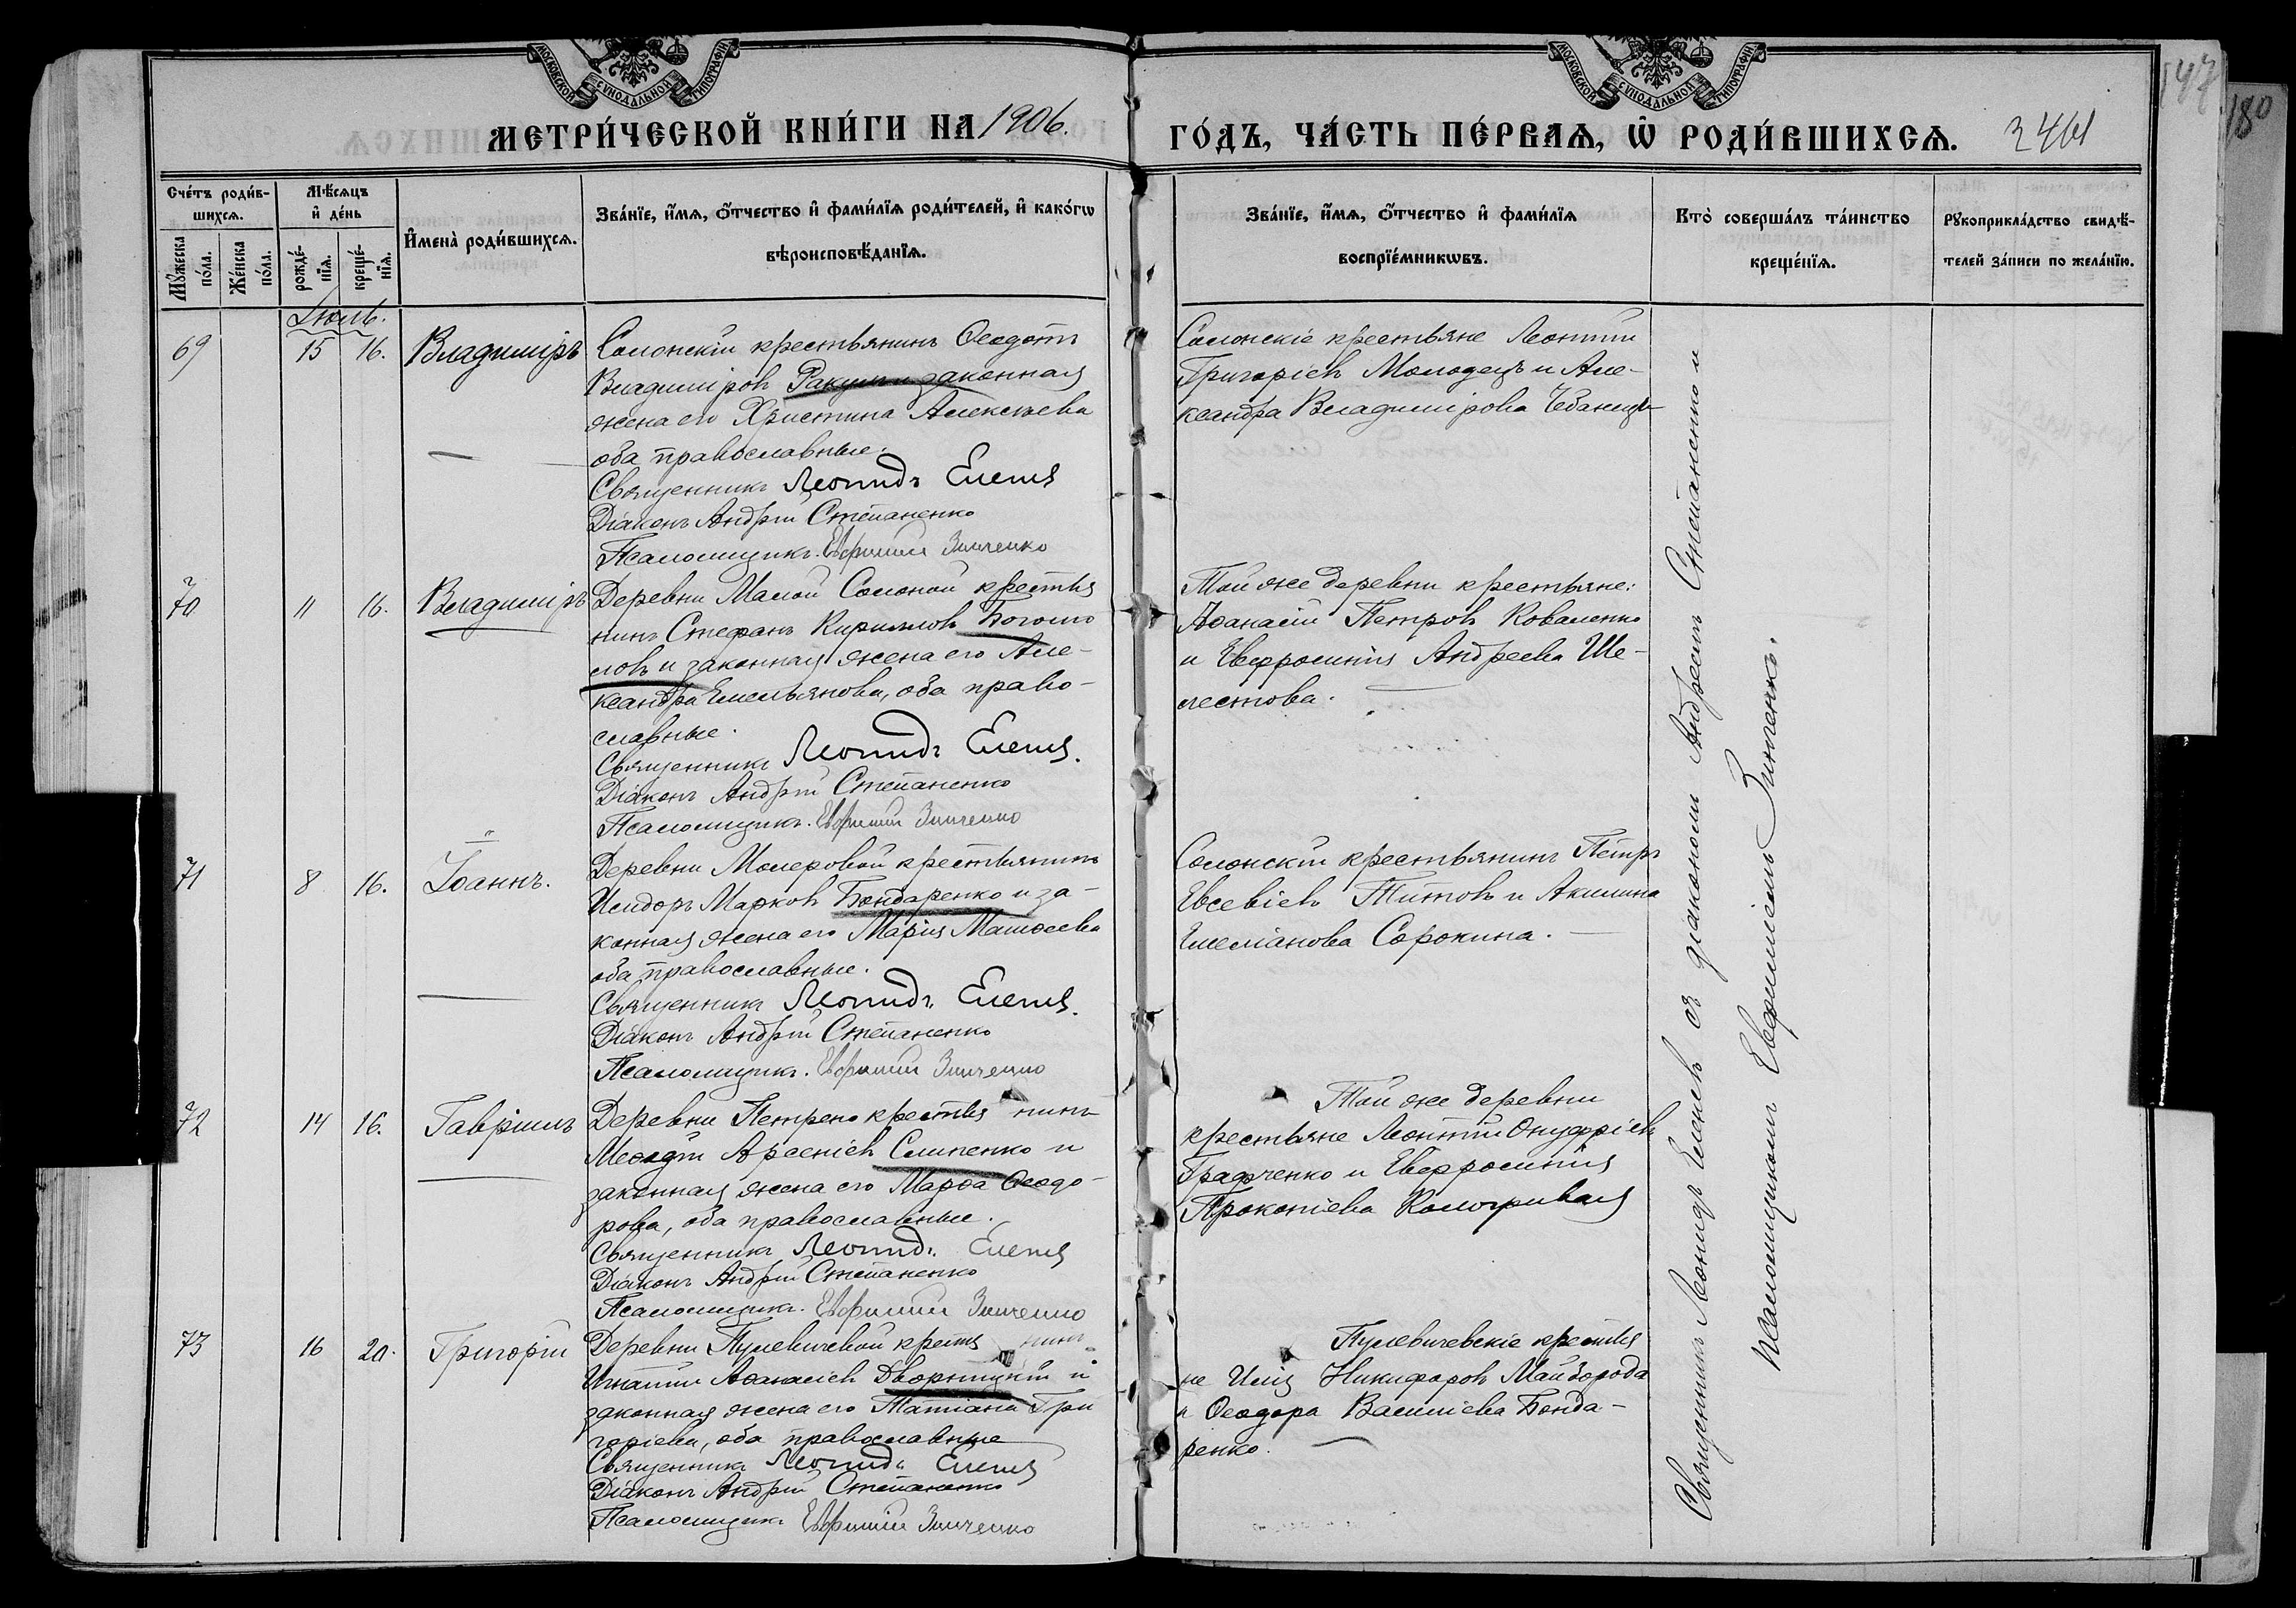 МОСКОВСКОЙ СѴНОДАЛЬНОЙ ТИПОГРАФІИ
МОСКОВСКОЙ СѴНОДАЛЬНОЙ ТИПОГРАФІИ
МЕТРИ́ЧЕСКОЙ КНИ́ГИ НА 1906.
ГО́ДЪ, ЧА́СТЬ ПЕ́РВАѦ, Ѿ РОДИ́ВШИХСѦ.
147
180
Сче́тъ роди́в-
шихсѧ.
Мꙋ́жеска
по́ла.
Же́нска
по́ла.
Мѣ́сѧцъ
и҆ де́нь
рожде́-
нїѧ.
креще́-
нїѧ.
И҆мена̀ роди́вшихсѧ.
Зва́нїе, и҆́мѧ, ѻ҆́тчество и҆ фами́лїѧ роди́телей, и҆ како́гѡ
вѣроисповѣ́данїѧ.
Зва́нїе, и҆́мѧ, ѻ҆́тчество и҆ фами́лїѧ
воспрїе́мникѡвъ.
Кто̀ соверша́лъ та́инство
креще́нїѧ.
Рꙋкоприкла́дство свидѣ́-
телей за́писи по жела́нїю.
Іюль.
69 15 16. Владиміръ
Солонскій крестьянинъ Ѳеодотъ
Владиміровъ законная
жена его Христина Алексѣева
оба православные.
Священникъ Леонидъ
Діаконъ Андрей Степаненко
Псаломщикъ. Евфимій Зинченко
Солонскіе крестьяне Леонтій
Григоріевъ Молодецъ и Але-
ксандра Владимірова
70 11 16. Владиміръ
Деревни Малой Солоной крестья
нинъ Стефанъ Кирилловъ Богомо
ловъ и законная жена его Але-
ксандра Емельянова, оба право-
славные.
Священникъ Леонидъ
Діаконъ Андрей Степаненко
Псаломщикъ. Евфимій Зинченко
Той же деревни крестьяне:
Аѳанасій Петровъ Коваленко
и Евфросинія Андреева Ше-
лестова.
71 8 16. Іоаннъ.
Деревни Молеровой крестьянинъ
Исидоръ Марковъ Бондаренко и за-
конная жена его Марія Матѳеева
оба православные.
Священникъ Леонидъ
Діаконъ Андрей Степаненко
Псаломщикъ. Евфимій Зинченко
Солонскій крестьянинъ Петръ
Евсевіевъ Титовъ и Акилина
Емеліанова Сорокина.
72 14 16. Гавріилъ
Деревни Петрено крестья нинъ
Меѳодій Арсеніевъ Слипенко и
законная жена его Марѳа Ѳеодо-
рова, оба православные.
Священникъ Леонидъ
Діаконъ Андрей Степаненко
Псаломщикъ. Евфимій Зинченко
Той же деревни
крестьяне Леонтій Онуфріевъ
и Евфросинія
Прокопіева Кологривая
73 16 20. Григорій
Деревни Пулевичевой крестья нинъ
Игнатій Аѳанасіевъ Дворницкій и
законная жена его Татіана Гри
горіева, оба православные
Священникъ Леонидъ
Діаконъ Андрей Степаненко
Псаломщикъ Евфимій Зинченко
Пулевичевскіе крестья
не Илія Никифоровъ Майборода
и Ѳеодора Василіева Бонда-
ренко.
Священникъ Леонидъ съ діакономъ Андреемъ Степаненко и
псаломщикомъ Евфиміемъ Зинченко.